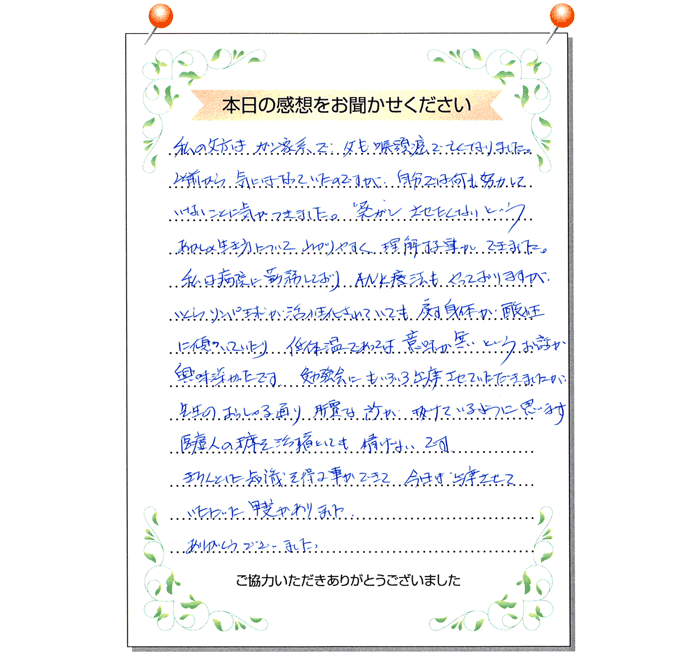 本日の感想をお聞かせください
私の父方は ガン家系で、父も喉頭癌で亡くなりました。
以前から 気にはなっていたのですが、自分では何も努力して
いないことに気がつきました。"発がん させたくない という
生き方について わかりやすく 理解する事が できました。
私は病院に勤務しており ANK療法も やっておりますが、
いくらリンパ球が活性化されていても 身体が 酸性
に傾いていたり 低体温であっては 意味が無い という お話が
興味深かったです 勉強会にもいろいろ出席させていただきましたが、
先生の おっしゃる通り が 抜けているように思います
医療人の 治 としても 情けない です
きちんとした知識を得る事ができて 今日は 出席させて
いただいた 甲斐がありました
ありがとうございました。
ご協力いただきありがとうございました